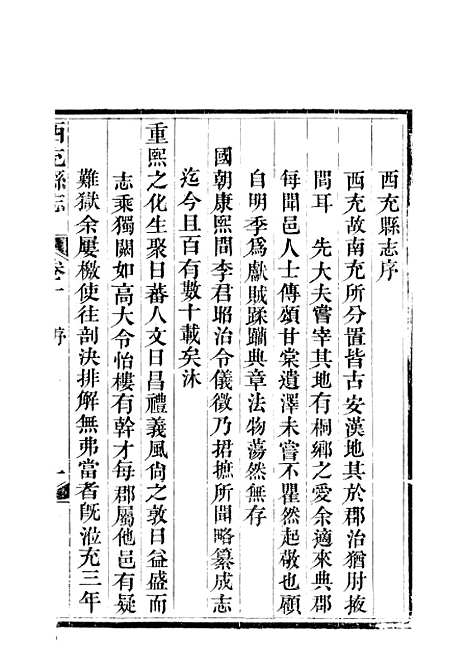 西充縣志序
西充故南充所分置皆古安漢地其於郡治猶肘掖
間耳　先大夫嘗宰其地有桐鄉之愛余適來典郡
每聞邑人士傳頌甘棠遺澤未嘗不瞿然起敬也顧
自明季爲獻賊蹂躪典章法物蕩然無存
國朝康熙間李君昭治令儀徵乃捃摭所聞略纂成志
迄今且百有數十載矣沐
重熙之化生聚日蕃人文日昌禮義風尙之敦日益盛而
志乘獨闕如高大令怡樓有幹才每郡屬他邑有疑
難獄余屢檄使往剖決排解無弗當者旣涖充三年
西充縣志　卷一　序　一